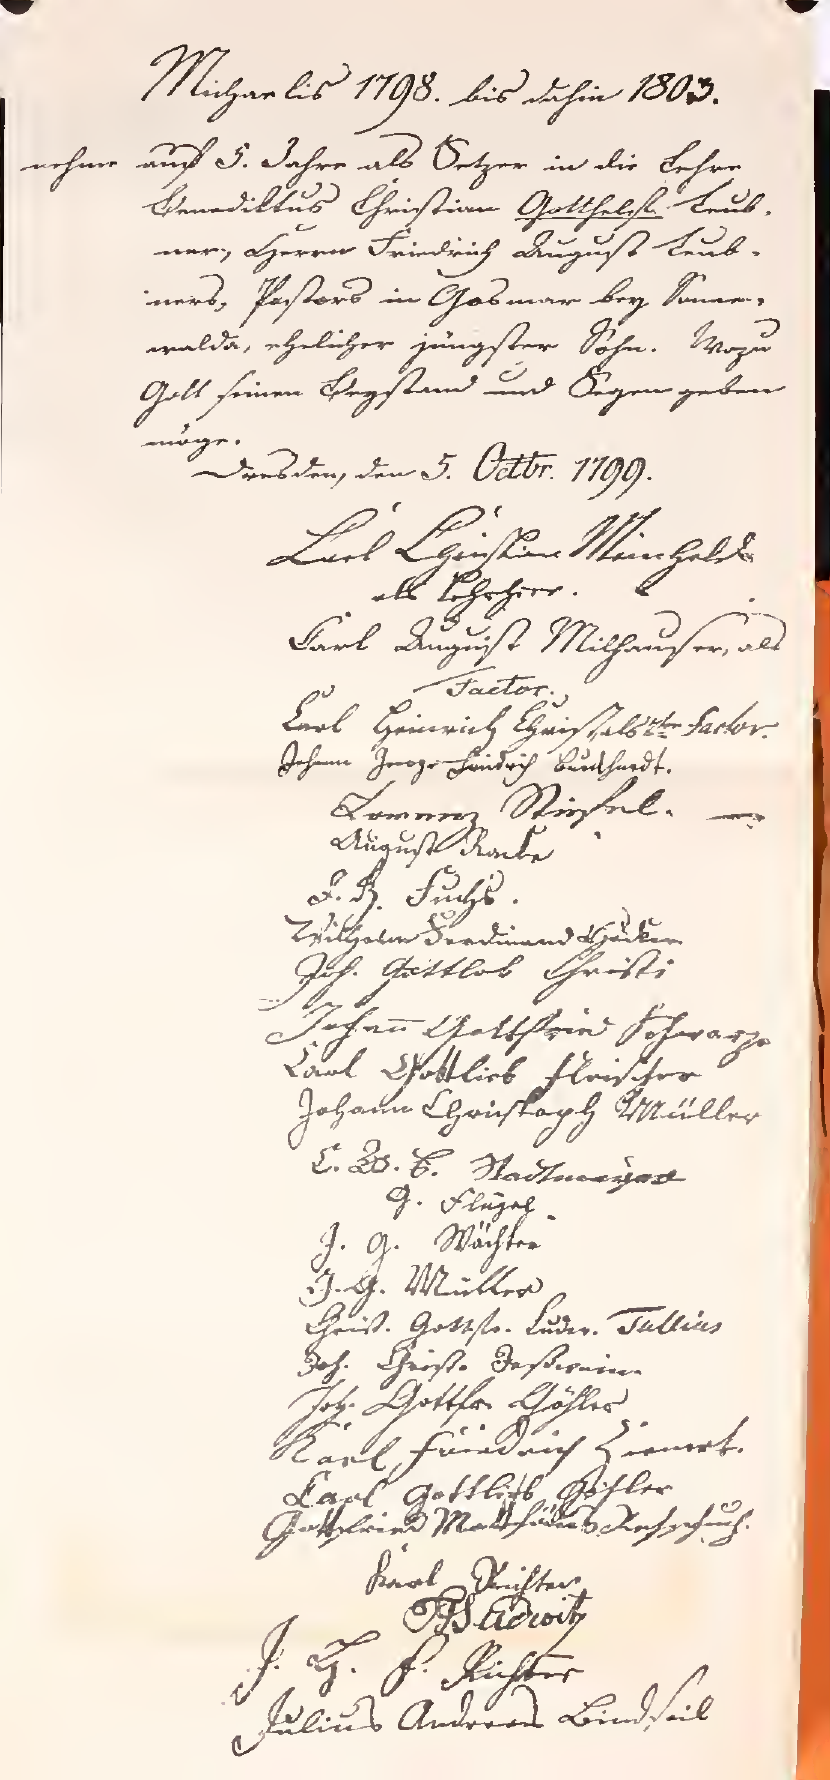 Michaelis 1798. bis dahin 1803.
nehme auf 5. Jahre als Setzer in die Lehre
Benediktus Christian Gotthelf Teub-
ner, Herrn Friedrich August Teub-
ners, Pastors in Gosmar bey Sonne-
walda, ehelicher jüngster Sohn. Wozu
Gott seinen Beystand und Segen geben
möge.
Dresden, den 5. Octbr. 1799.
Carl Christian Meinhold
als Lehrherr.
Carl August Milhauser, als
Factor.
Carl Heinrich Christ, als 2ter Factor.
Johann Friedrich Burckhardt.
Lorenz Stiefel.
August Racke
J. H. Fuchs.
Wilhelm Ferdinand
Joh. Gottlob Christi
Johann Gottfried Schwarze
Carl Gottlieb Fleischer
Johann Christoph Müller
C. W. E. Stadtmeyer
G. Flügel
J. G. Wächter
J. G. Müller
Christ. Gottfr. Ludw. Tullius
Joh. Christ.
Joh. Gottfr. Göhler
Karl Friedrich
Carl Gottlieb Göhler
Gottfried Matthäus
Karl Richter
J. H. F. Richter
Julius Andreas Bindseil